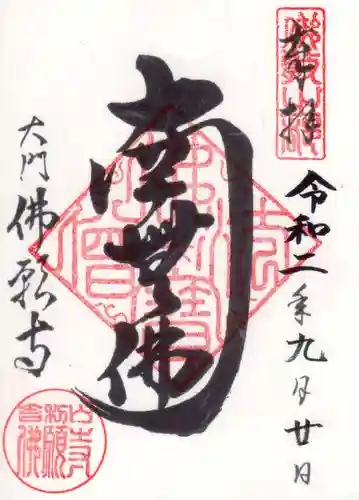 奉拝
令和二年九月廿日
南無佛
大門佛願寺